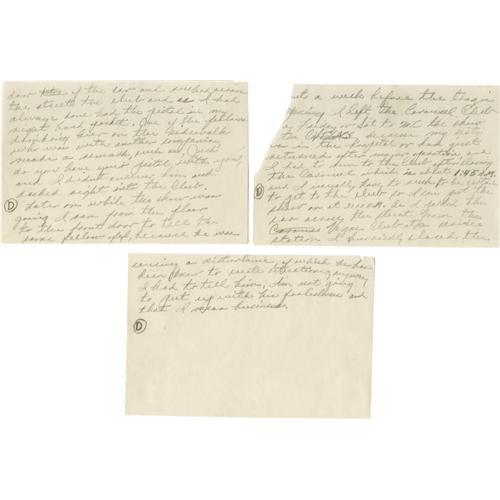 door of the car and rushed across
the street to the club and as I had
always done had the pistol in my
right hand pocket. One of the fellows
standing over on the sidewalk
who was with another companion
made a remark, such as "Jack
do you have your pistol with you,"
and I didn't answer him and
rushed right into the Club.
Later on while the show was
going I ran from the floor
to the front door to tell the
same fellow off, because he was
D
out a week before the tragic
I left the Carousel Club
on Friday or Sat to MC the show
because my sister
was in the hospital or had just
returned after operation and
I had to run to the Club after closing
the Carousel which is about 1:45 A.M.
and I usually have to rush to be certain
to get to the Club to the
show on at 2:00 A.M. As I parked the
car across the street from the
Vegas Club at a service
station I hurriedly the
D
causing a disturbance of which he has
been known to create anyway,
I had to tell him, I'm not going
to put up with his foolishness and
that I mean business.
D